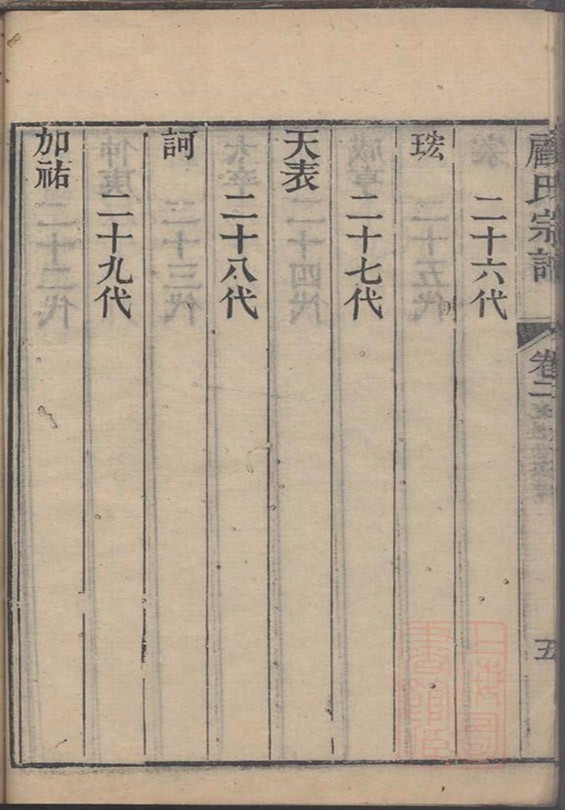 顧氏宗譜
卷二
五
二十六代
玹
二十七代
天表
二十八代
訶
二十九代
加祐
上海圖書館藏